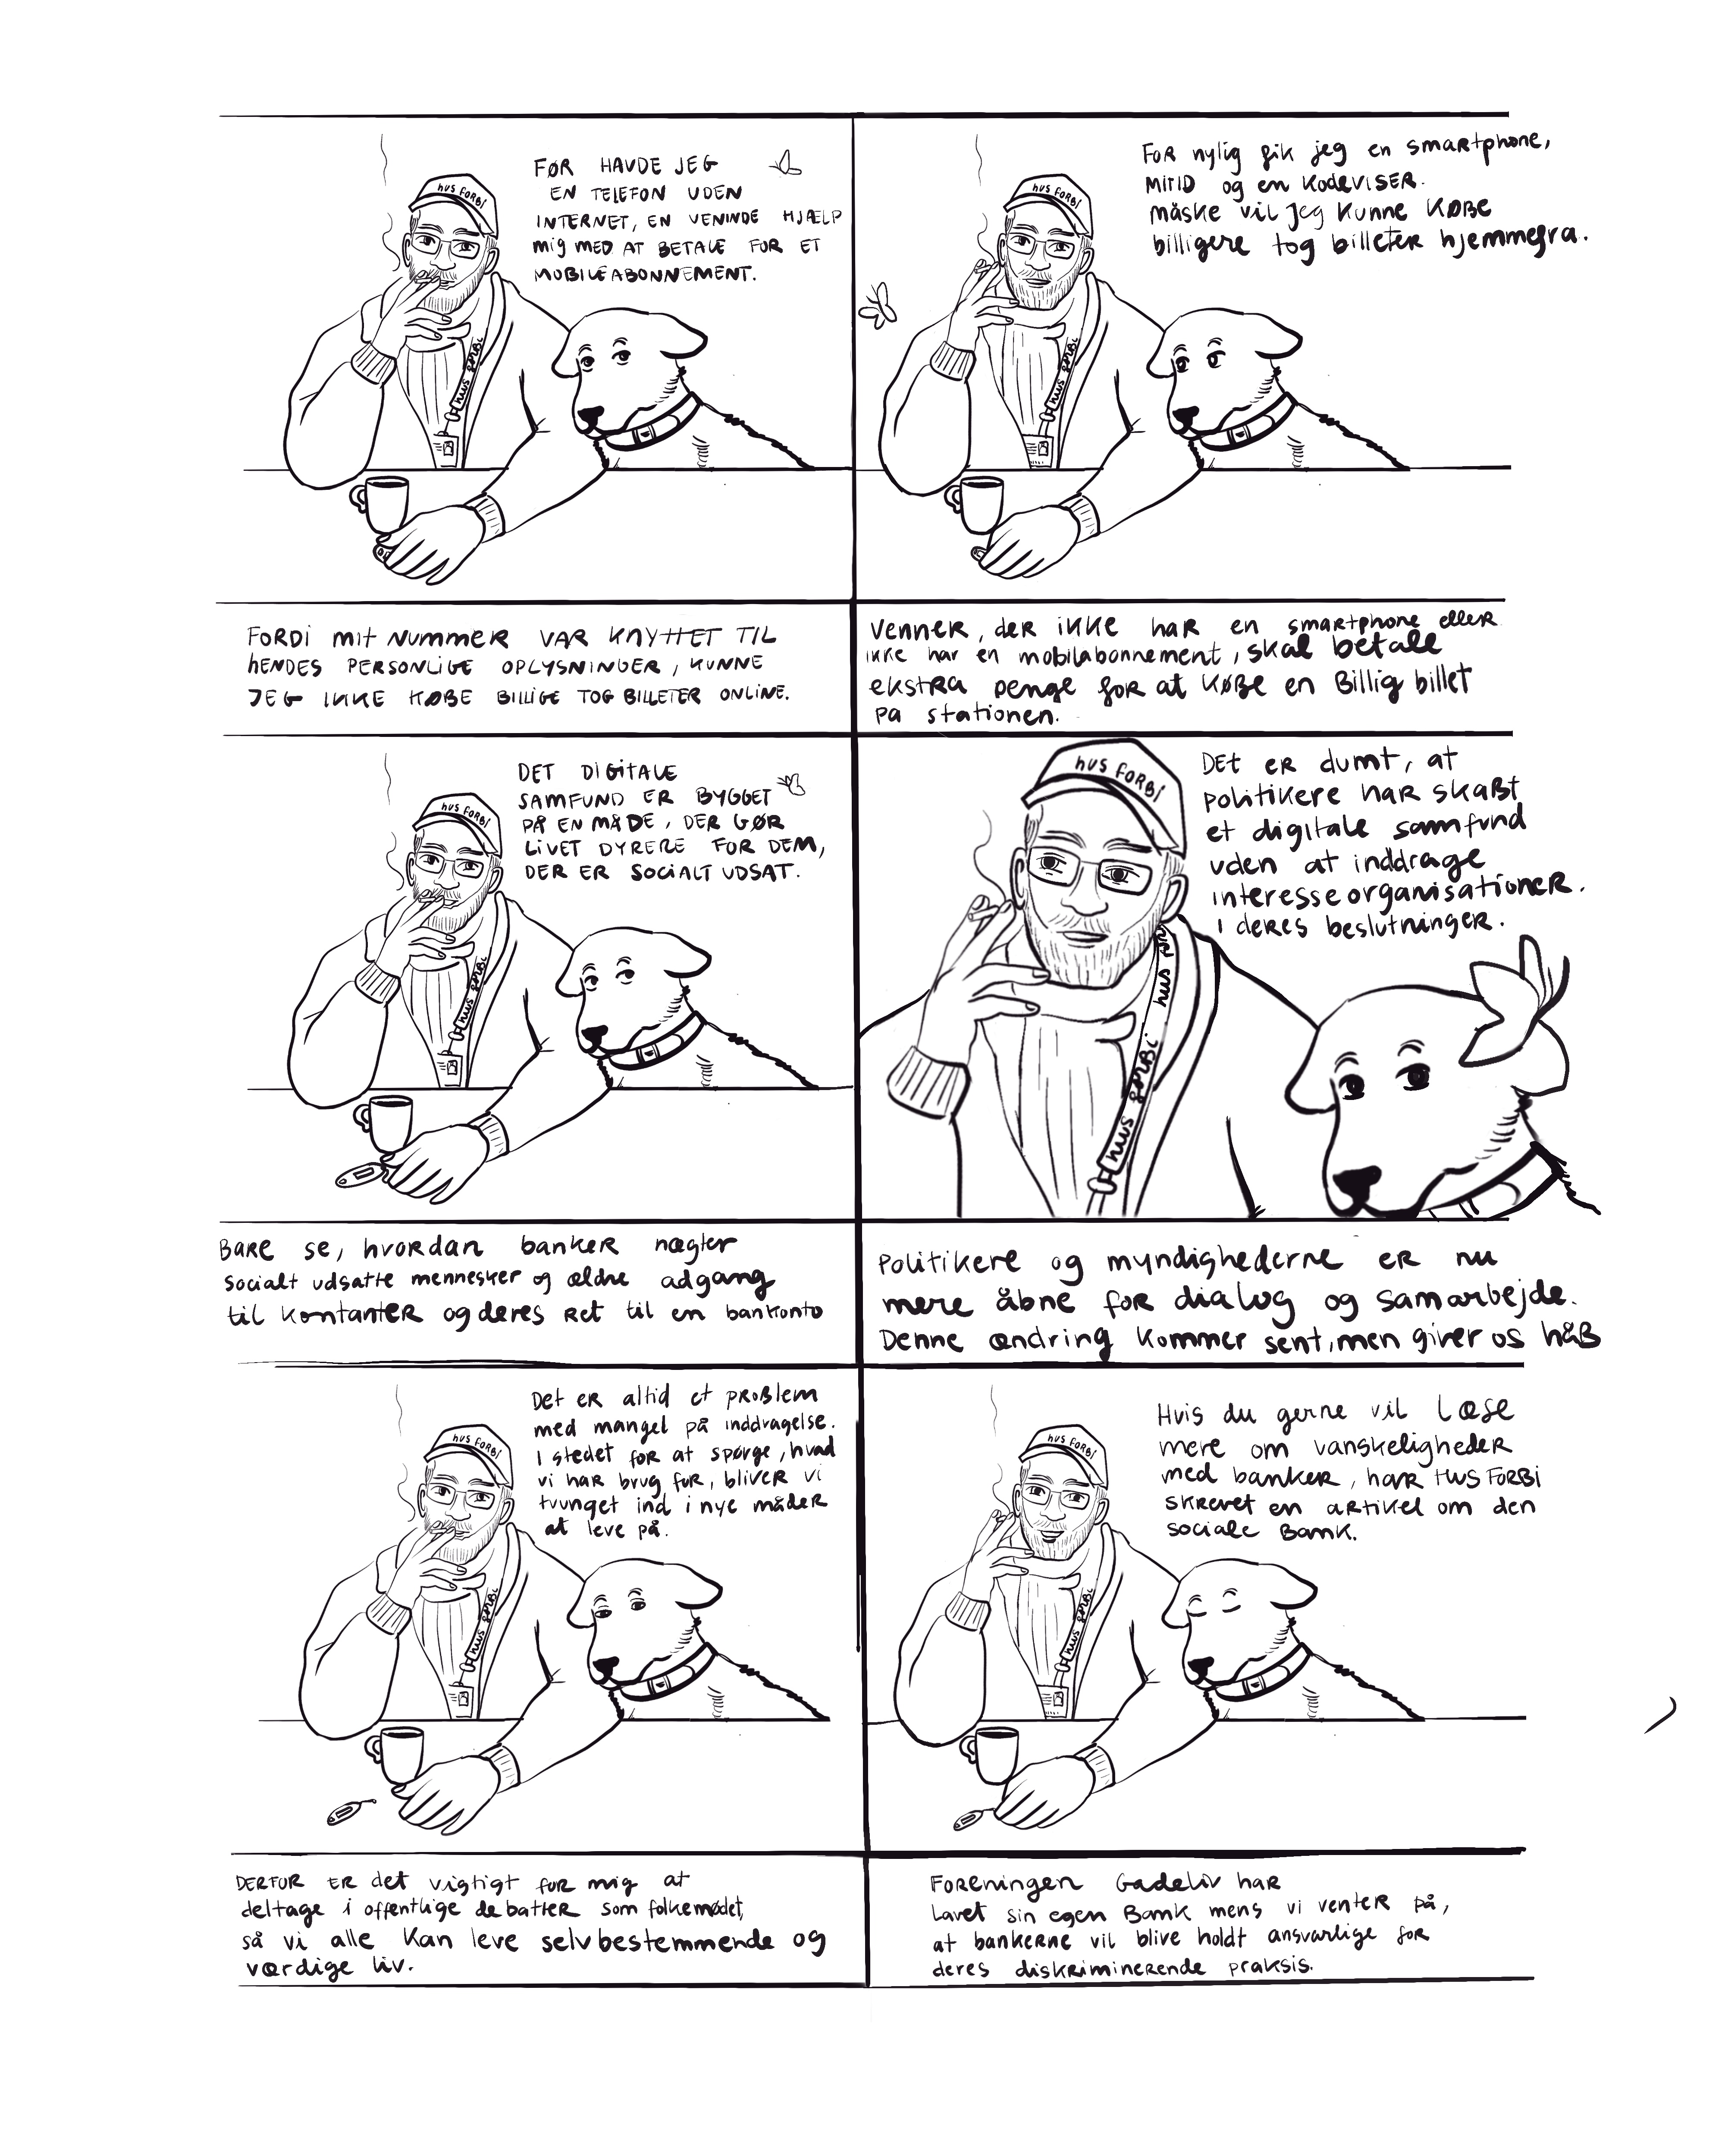 FØR HAVDE JEG
EN TELEFON UDEN
INTERNET, EN VENINDE HJÆLP
mig MED AT BETALE FOR ET
MOBILEABONNEMENT.
hus FORBi
hus FORBi
FORDi mit NUMMER VAR KNYTTET TIL
HENDES PERSONLIGE OPLYSNINGER, KUNNE
JEG IKKE KØBE BILLIGE TOG BILLETER ONLINE.
FOR nylig fik jeg en smartphone,
MitID og en KodeVISER.
måske vil jeg kunne KØBE
billigere tog billeter hjemmefra.
hus FORBi
hus FORBi
Venner, der ikke har en smartphone eller
ikke har en mobilabonnement, skal betale
ekstra penge for at KØBE en Billig billet
pa stationen.
DET DIGITALE
SAMFUND ER BYGGET
PÅ EN MÅDE, DER GØR
LIVET DYRERE FOR DEM,
DER ER SOCIALT UDSAT.
hus FORBi
hus FORBi
Bare se, hvordan banker nægter
socialt udsatte mennesker og ældre adgang
til kontanter og deres ret til en bankonto
DEt ER dumt, at
politikere har skaBt
et digitale samfund
uden at inddrage
interesseorganisationer.
i deres beslutninger.
hus FORBi
hus FOR
hus FORBi
Politikere og myndighederne er nu
mere åbne for dialog og samarbejde.
Denne ændring kommer sent, men giver os håB
Det er altid et problem
med mangel på inddragelse.
I stedet for at spørge, hvad
vi har brug for, bliver vi
tvunget ind i nye måder
at leve på.
hus FORBi
hus FORBi
DERFOR ER det vigtigt for mig at
deltage i offentlige debatter som folkemødet,
så vi alle kan leve selvbestemmende og
værdige liv.
Hvis du gerne vil læse
mere om vanskeligheder
med banker, har HUS FORBi
skrevet en artikel om den
sociale Bank.
hus FORBi
hus FORBi
Foreningen Gadeliv har
Lavet sin egen Bank mens vi venter på,
at bankerne vil blive holdt ansvarlige for
deres diskriminerende praksis.